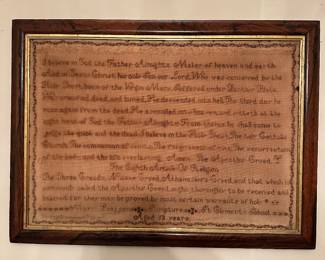 I believe in God the Father Almighty Maker of heaven and earth
And in Jesus Christ his only Son our Lord, Who was conceived by the
Holy Ghost, born of the Virgin Mary, Suffered under Pontius Pilate
Was crucified dead and buried, He descended into hell, The third day he
rose again from the dead, He ascended into heaven, and sitteth at the
right hand of God the Father Almighty From thence he shall come to
judge the quick and the dead. I believe in the Holy Ghost, The holy Catholic
Church The communion of saints, The forgiveness of sins, The resurrection
of the body, and the life everlasting. Amen. The Apostles Creed.
The Eighth Article Of Religion
The Three Creeds, Nicene Creed, Athanasius's Creed, and that which is
commonly called the Apostles Creed ought thoroughly to be received and
believed for they may be proved by most certain warrants of holy
Scripture St Clement's School
Aged 13 years